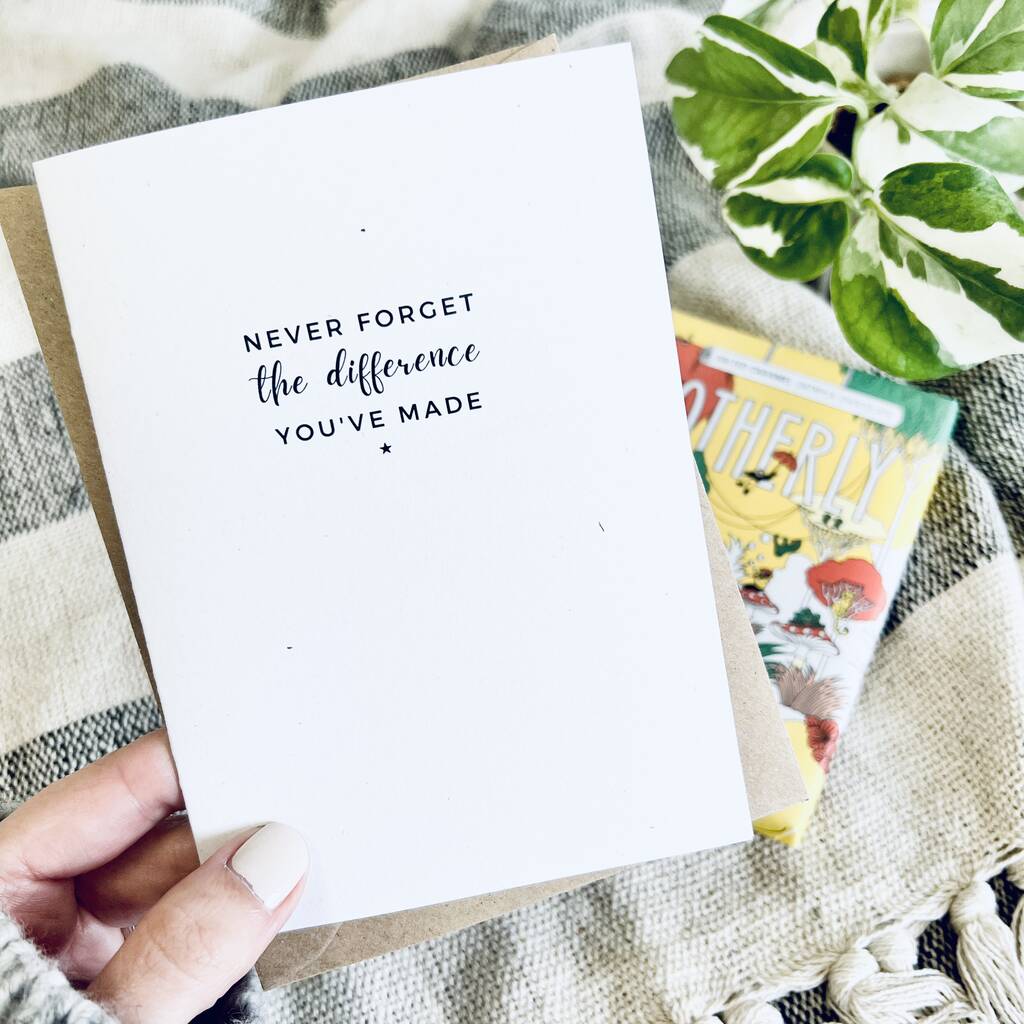 NEVER FORGET
the difference
YOU'VE MADE
OTHERLY